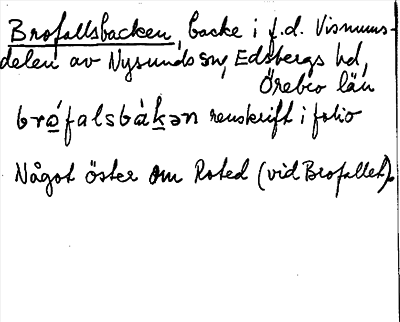 Brofallsbacken, backe i f.d. Vismums-
delen av Nysunds sn, Edsbergs hd,
Örebro län
brόfalsbàkən renskrift i folio
Något öster om Roted (vid Brofallet).